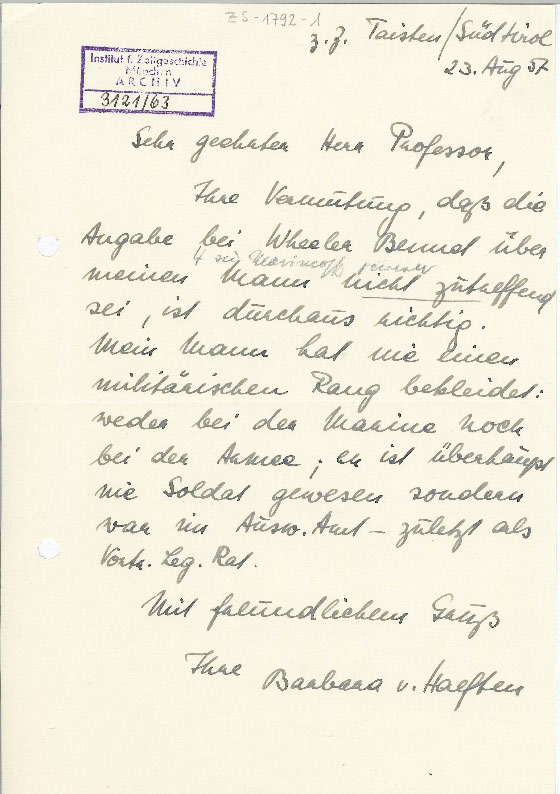 ZS-1792-1
z. Z. Taisten/Südtirol
23. Aug 57
Institut f. Zeitgeschichte
München
ARCHIV
3121/63
Sehr geehrter Herr Professor,
Ihre Vermutung, daß die
Angabe bei Wheeler Bennet über
meinen Mann nicht zutreffend
sei, ist durchaus richtig.
Mein Mann hat nie einen
militärischen Rang bekleidet:
weder bei der Marine noch
bei der Armee; er ist überhaupt
nie Soldat gewesen sondern
war im Ausw. Amt – zuletzt als
Vortr. Leg. Rat.
Mit freundlichem Gruß
Ihre Barbara v. Haeften